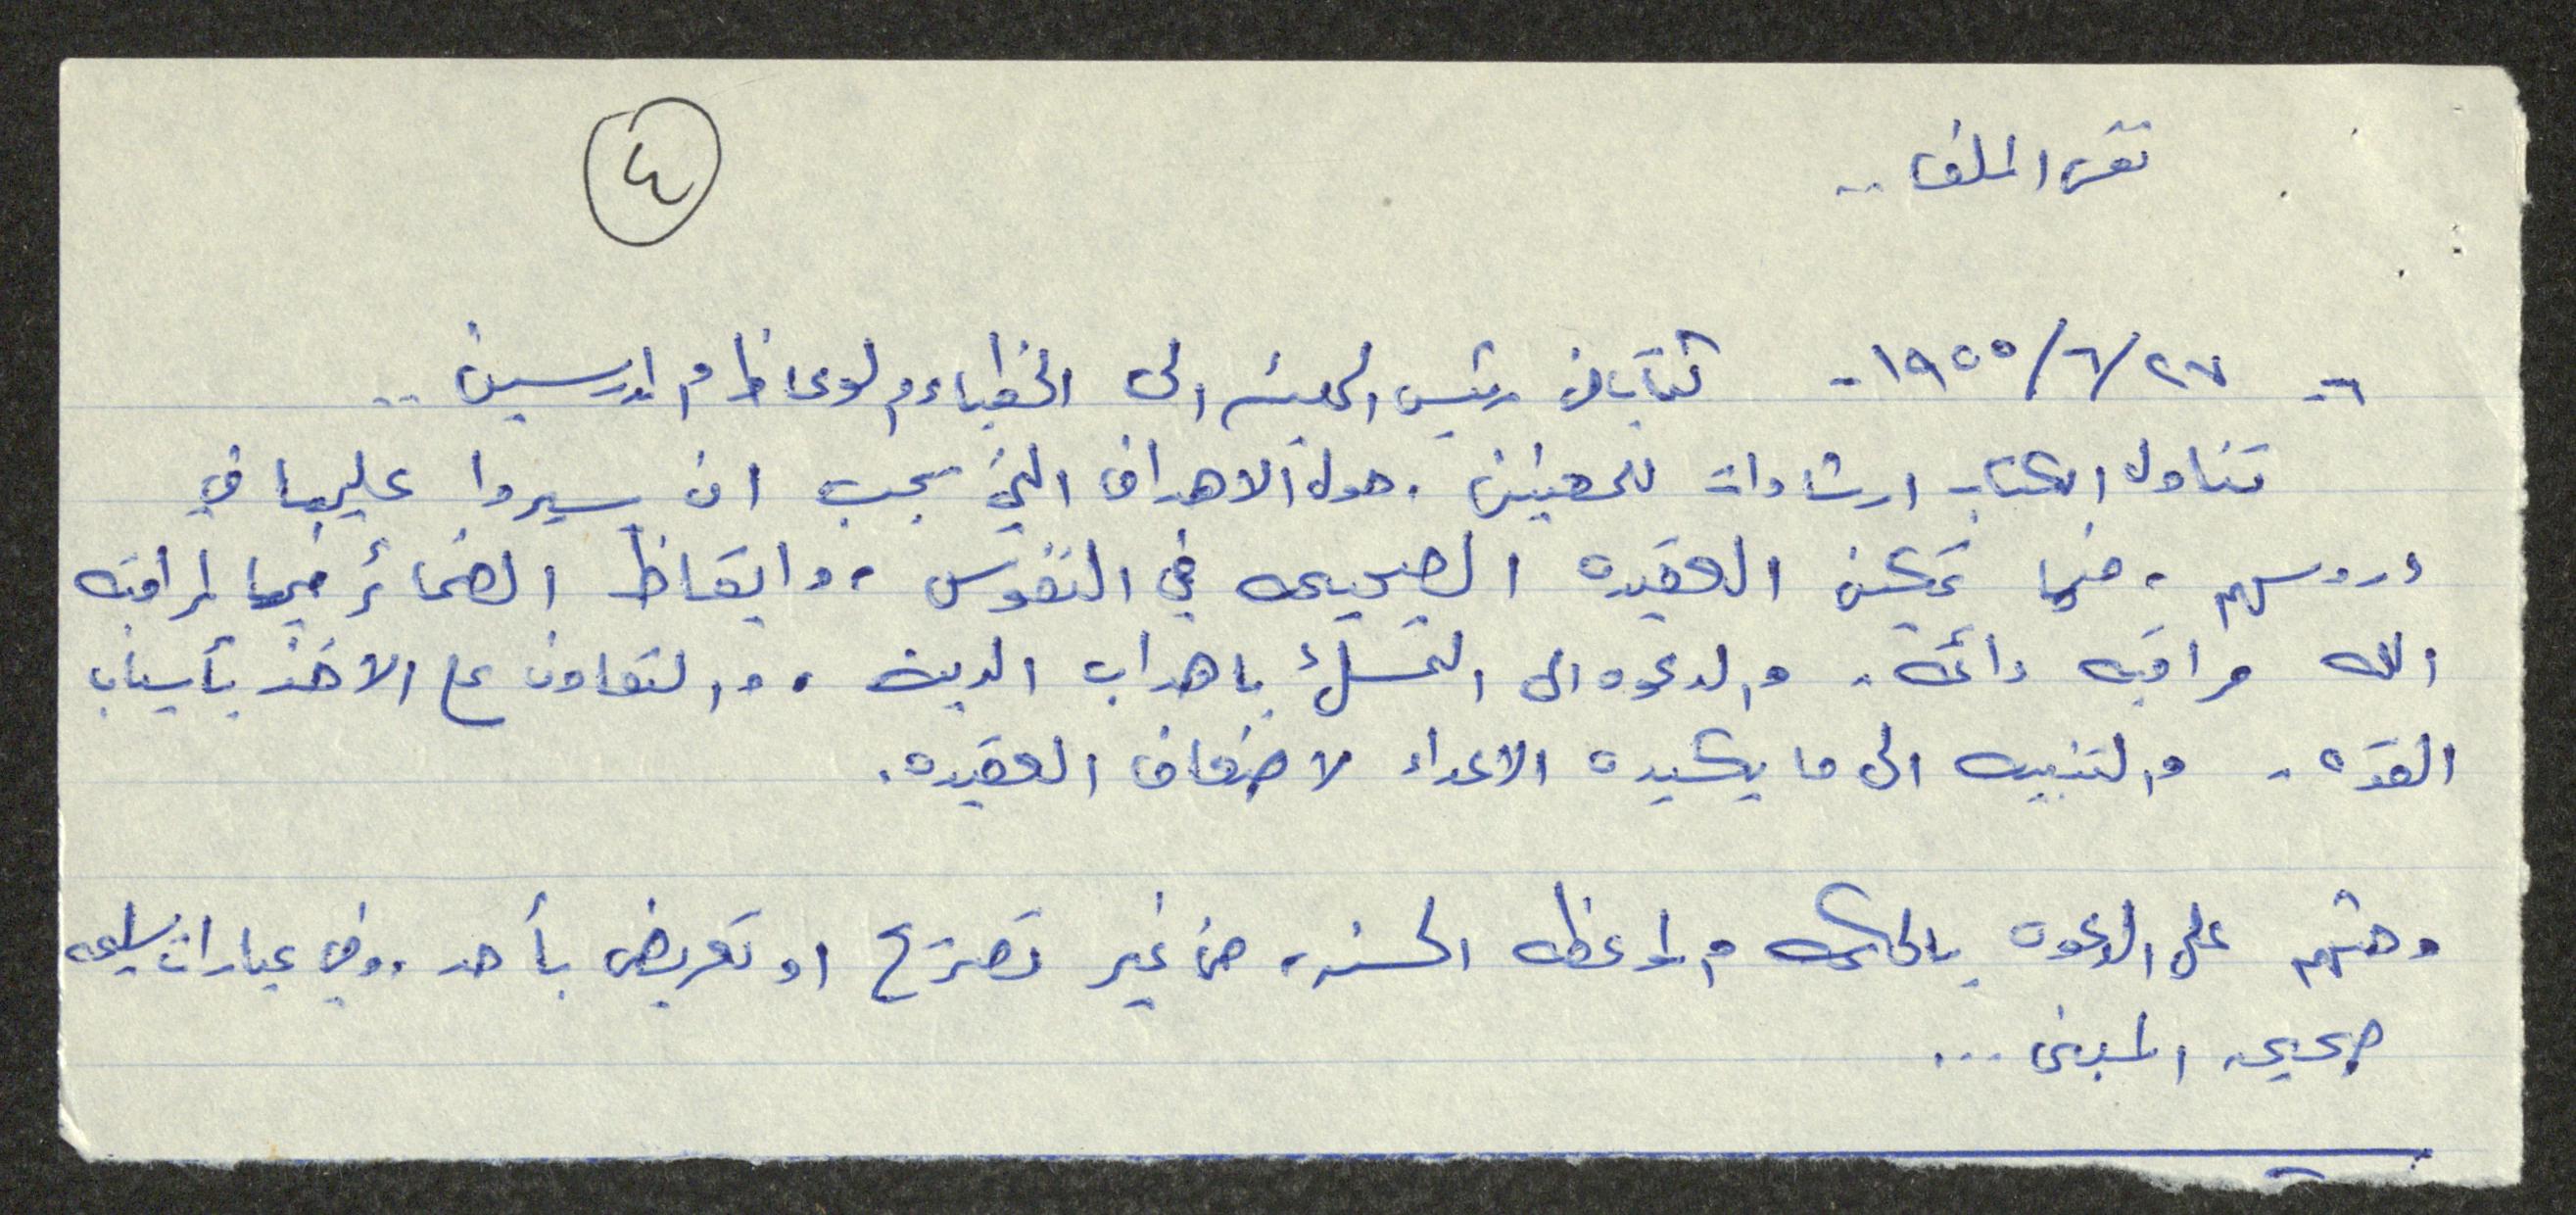 ٤
نفس الملف ..
٦- ٢٧/٦/١٩٥٥- كتاب من رئيس الهيئه الى الخطباء والوعاظ والمدرسين ..
تناول الكتاب ارشادات للمعنيين. حول الاهداف التي يجب ان يسيروا عليها في
دروسهم، منها تمكين العقيده الصحيحه في النفوس، وايقاظ الضمائر فيها لمراقبه
الله مراقبه دائمه. والدعوه الى التمسك باهداب الدين، والتعاون على الاخذ بأسباب
القوه. والتنبيه الى ما يكيده الاعداء لاضعاف العقيده.
وحثهم على الدعوه بالحكمه والموعظه الحسنه، من غير تصريح او تعريض بأحد. وفي عبارات سليمه
صحيحه المبنى ...